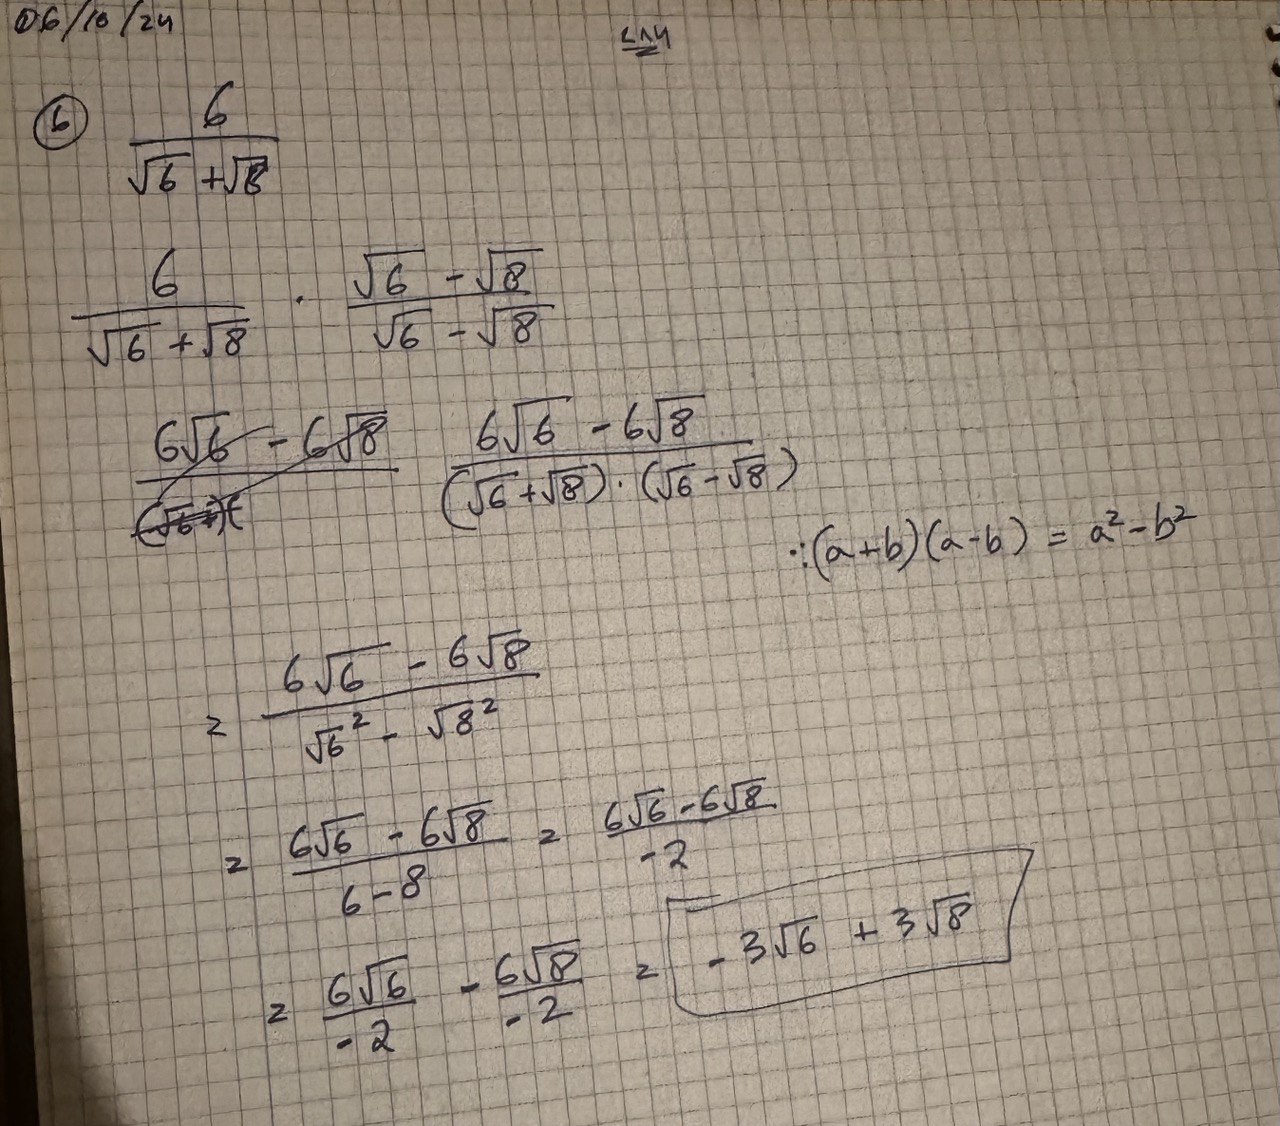 06/10/24
L14
6 6/(√6 + √8)
6/(√6 + √8) · (√6 - √8)/(√6 - √8)
(6√6 - 6√8)/((√6 + √8) · (√6 - √8))
∵ (a+b)(a-b) = a² - b²
= (6√6 - 6√8)/(√6² - √8²)
= (6√6 - 6√8)/(6 - 8) = (6√6 - 6√8)/(-2)
= 6√6/(-2) - 6√8/(-2) = -3√6 + 3√8